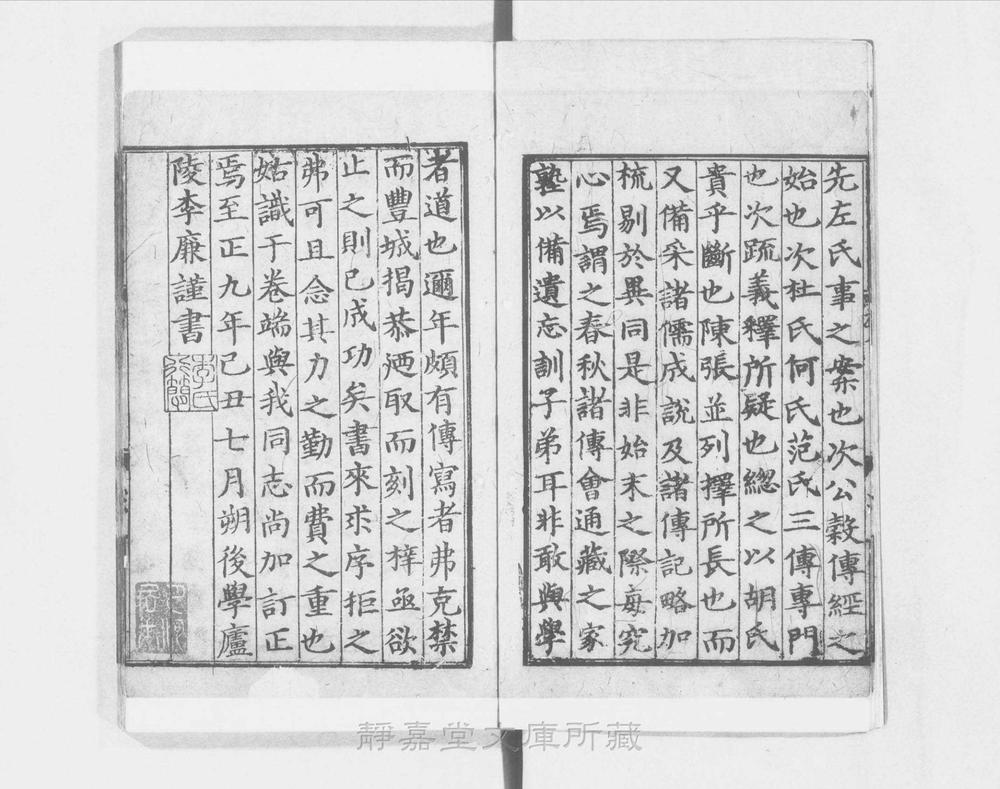 先左氏事之案也次公穀傳經之
始也次杜氏何氏范氏三傳專門
也次䟽義釋所疑也緫之以胡氏
貴乎斷也陳張並列擇所長也而
又備采諸儒成說及諸傳記略加
梳剔於異同是非始末之際每究
心焉謂之春秋諸傳會通藏之家
塾以備遺忘訓子弟耳非敢與學
者道也邇年頗有傳寫者弗克禁
而豐城揭恭廼取而刻之梓亟欲
止之則已成功矣書來求序拒之
弗可且念其力之勤而費之重也
姑識于卷端與我同志尚加訂正
焉至正九年己丑七月朔後學廬
陵李廉謹書
李氏
靜嘉堂文庫所藏